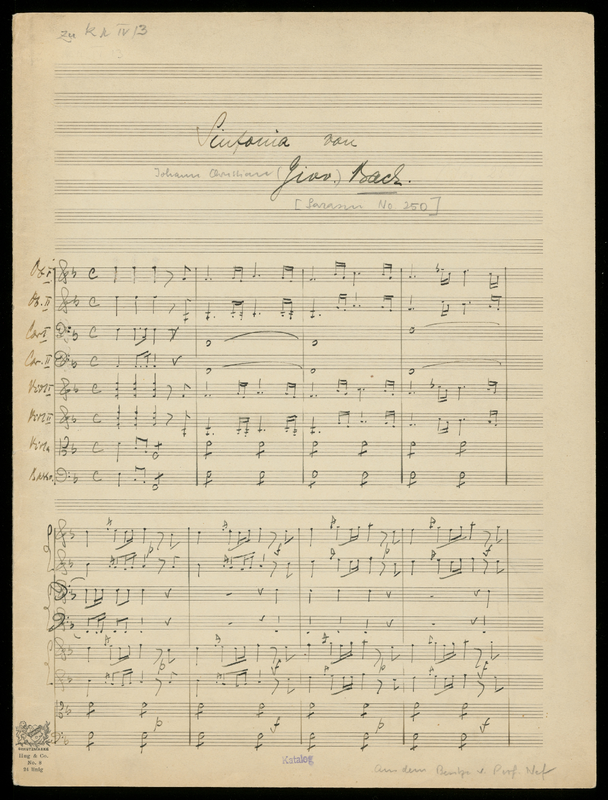 Zu K r IV 13
Sinfonia von
Johann Christian (Giov.) Bach.
[Sarasin No 250]
Ob. I
Ob. II
Cor I
Cor. II
Viol I
Viol II
Viola
Basso
p f p f p f
p f p f
Hug & Co.
No. 9
24 linig
Katalog
aus dem Besitze v. Prof. Nef